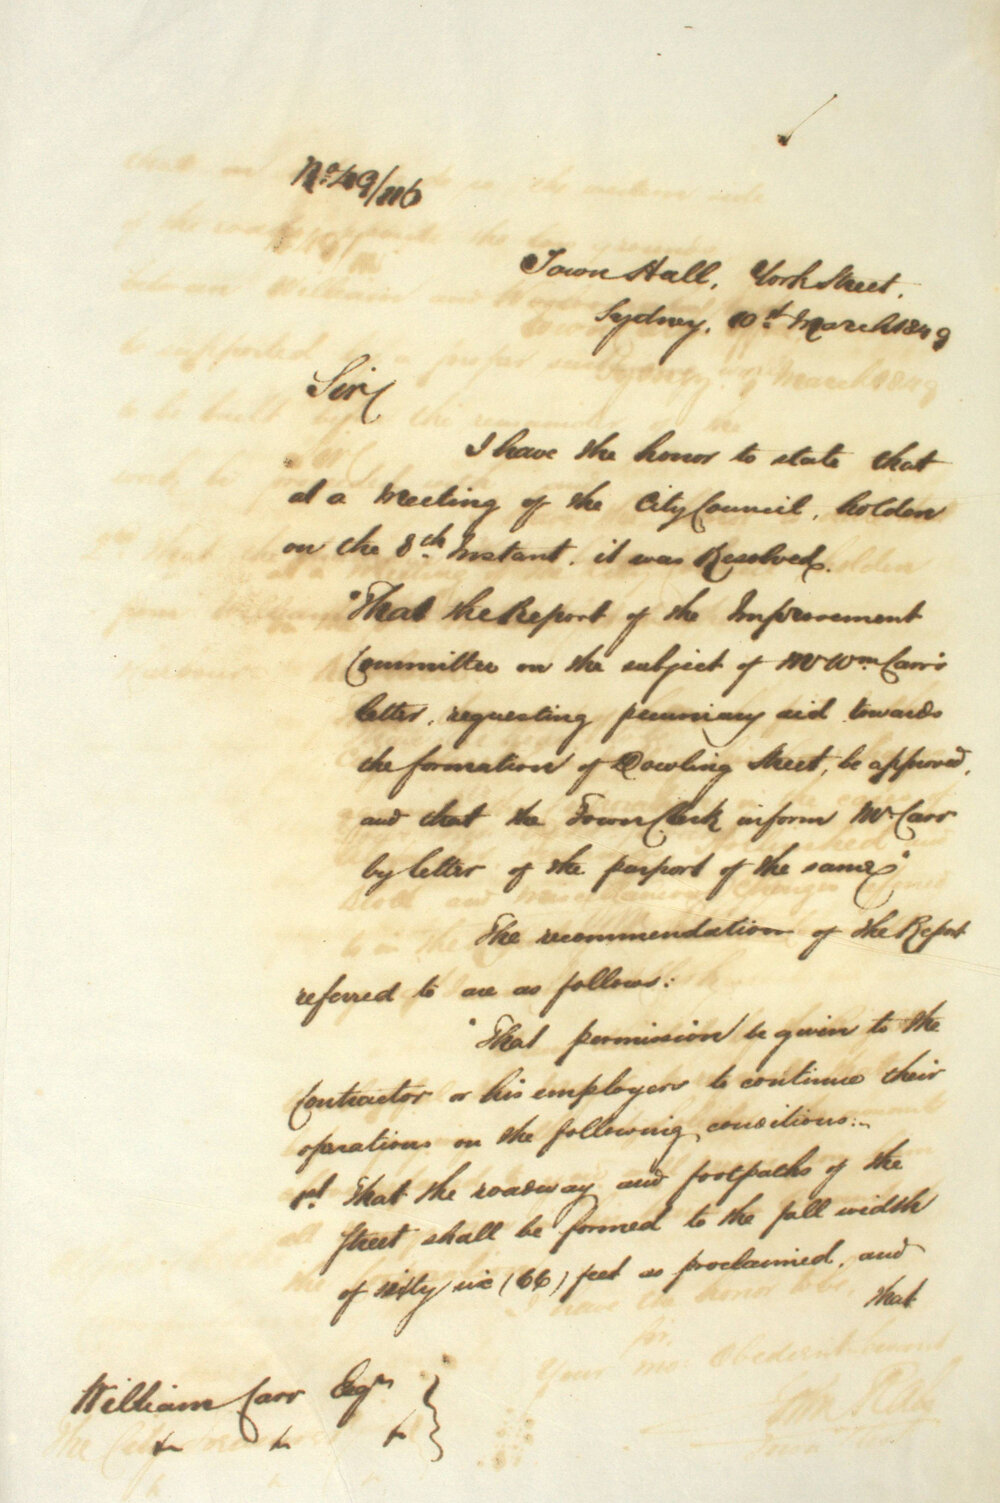 No. 49/116
Town Hall, York Street,
Sydney, 10th March 1849
Sir,
I have the honor to state that
at a Meeting of the City Council, holden
on the 8th Instant, it was Resolved.
"That the Report of the Improvement
Committee on the subject of Mr Wm Carr's
letter, requesting pecuniary aid towards
the formation of Dowling Street, be approved,
and that the Town Clerk inform Mr Carr
by letter of the purport of the same"
The recommendation of the Report
referred to are as follows:
"That permission be given to the
Contractor or his employers to continue their
operations on the following conditions:-
1st That the roadway and footpaths of the
Street shall be formed to the full width
of sixty six (66) feet as proclaimed, and
that
William Carr Esqr